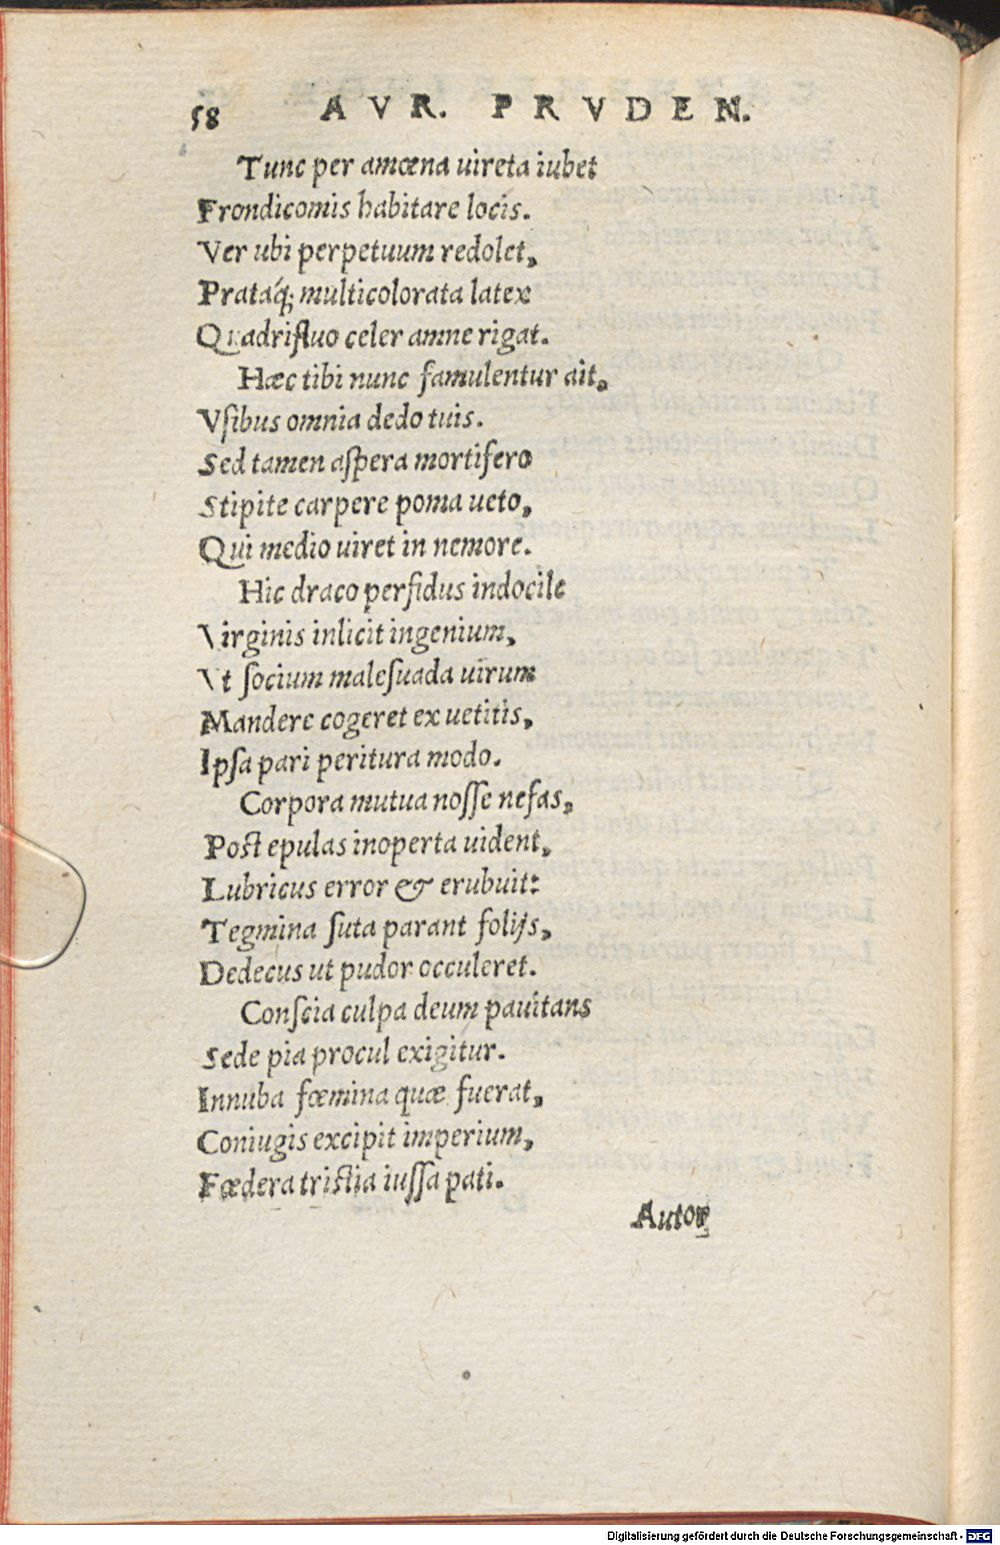 58 AVR. PRVDEN.
Tunc per amœna uireta iubet
Frondicomis habitare locis.
Ver ubi perpetuum redolet,
Prataq́; multicolorata latex
Quadrifluo celer amne rigat.
Hæc tibi nunc famulentur ait,
Vſibus omnia dedo tuis.
Sed tamen aſpera mortifero
Stipite carpere poma ueto,
Qui medio uiret in nemore.
Hic draco perfidus indocile
Virginis inlicit ingenium,
Vt ſocium maleſuada uirum
Mandere cogeret ex uetitis,
Ipſa pari peritura modo.
Corpora mutua noſſe nefas,
Poſt epulas inoperta uident,
Lubricus error & erubuit:
Tegmina ſuta parant folijs,
Dedecus ut pudor occuleret.
Conſcia culpa deum pauitans
Sede pia procul exigitur.
Innuba fœmina quæ fuerat,
Coniugis excipit imperium,
Fœdera triſtia iuſſa pati.
Autor
Digitalisierung gefördert durch die Deutsche Forschungsgemeinschaft - DFG